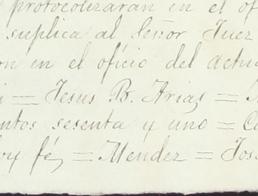 protocolizaran en el of
suplica al Señor Juez
on en el oficio del actua
= Jesus B. Arias =
ntos sesenta y uno = Co
oy fé, = Mendez = Jos